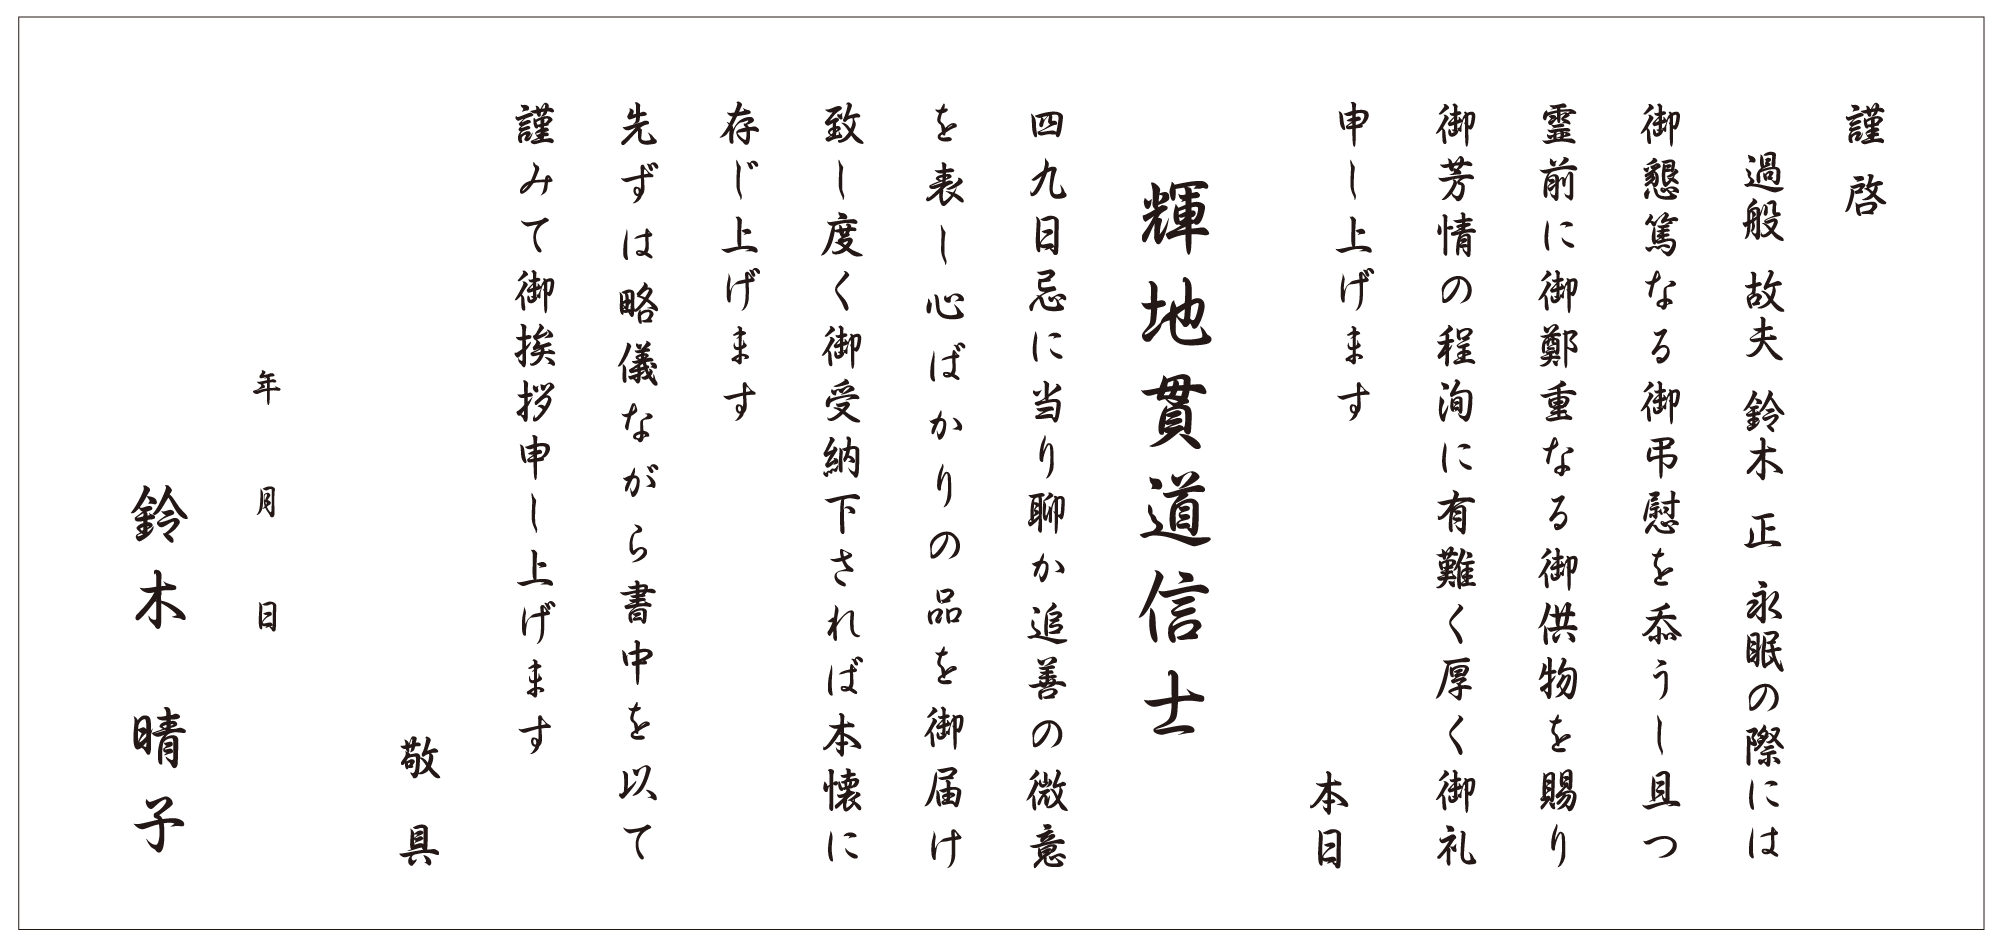 謹啓
過般 故夫 鈴木 正 永眠の際には
御懇篤なる御弔慰を忝うし且つ
霊前に御鄭重なる御供物を賜り
御芳情の程洵に有難く厚く御礼
申し上げます
本日
輝地貫道信士
四九日忌に当り聊か追善の微意
を表し心ばかりの品を御届け
致し度く御受納下されば本懐に
存じ上げます
先ずは略儀ながら書中を以て
謹みて御挨拶申し上げます
敬具
年 月 日
鈴木 晴子